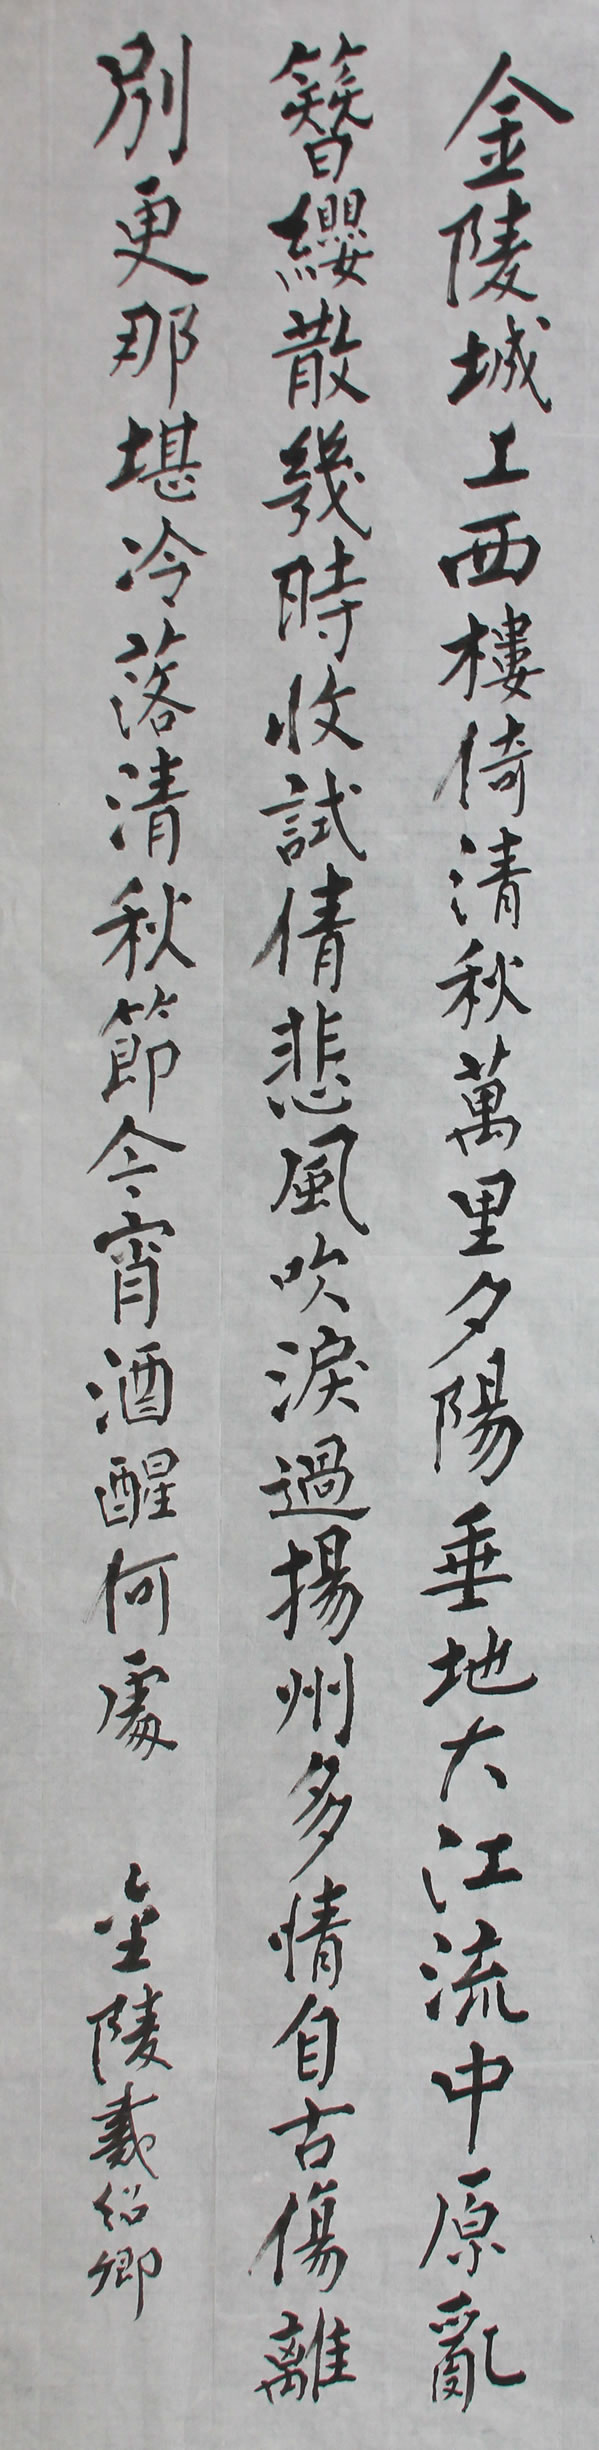 金陵城上西樓倚清秋萬里夕陽垂地大江流中原亂
簪纓散幾時收試倩悲風吹淚過揚州多情自古傷離
別更那堪冷落清秋節今宵酒醒何處
金陵戴紹卿